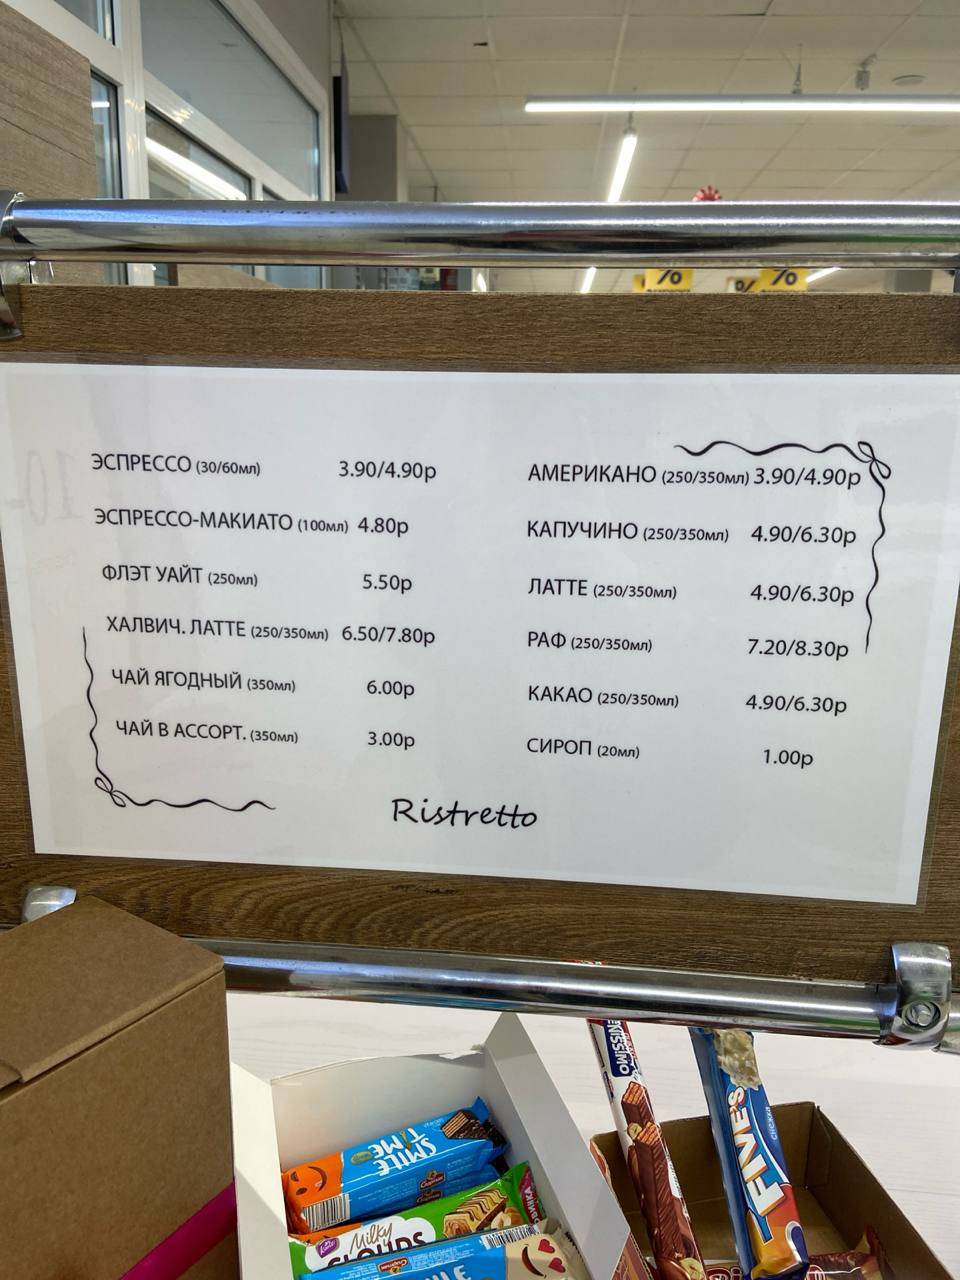 %
%
%
ЭСПРЕССО (30/60мл) 3.90/4.90р
ЭСПРЕССО-МАКИАТО (100мл) 4.80р
ФЛЭТ УАЙТ (250мл) 5.50р
ХАЛВИЧ. ЛАТТЕ (250/350мл) 6.50/7.80р
ЧАЙ ЯГОДНЫЙ (350мл) 6.00р
ЧАЙ В АССОРТ. (350мл) 3.00р
АМЕРИКАНО (250/350мл) 3.90/4.90р
КАПУЧИНО (250/350мл) 4.90/6.30р
ЛАТТЕ (250/350мл) 4.90/6.30р
РАФ (250/350мл) 7.20/8.30р
КАКАО (250/350мл) 4.90/6.30р
СИРОП (20мл) 1.00р
Ristretto
SMILE
TIME
Спартак
Milky
CLOUDS
Спартак
SMILE
FIVE'S